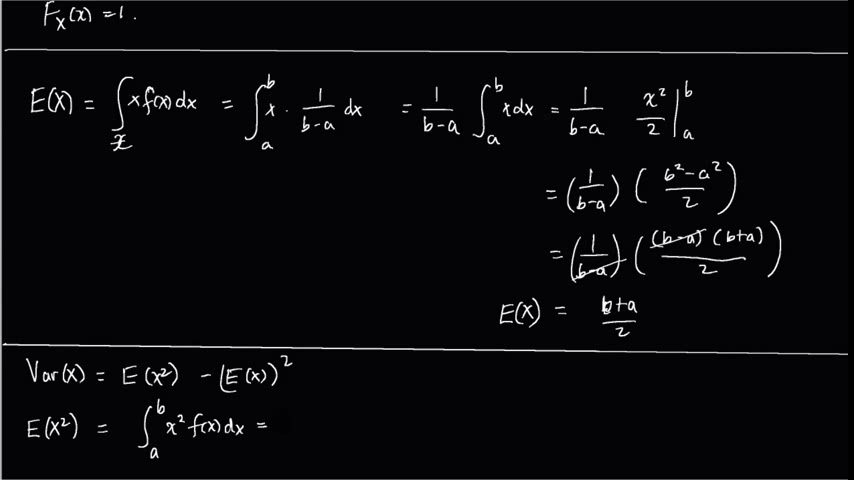 F_X(x) = 1.
E(X) = ∫_x x f(x) dx = ∫_a^b x · 1/(b-a) dx = 1/(b-a) ∫_a^b x dx = 1/(b-a) x²/2 |_a^b
= (1/(b-a)) ((b²-a²)/2)
= (1/(b-a)) ((b-a)(b+a)/2)
E(X) = (b+a)/2
Var(X) = E(X²) - (E(X))²
E(X²) = ∫_a^b x² f(x) dx =